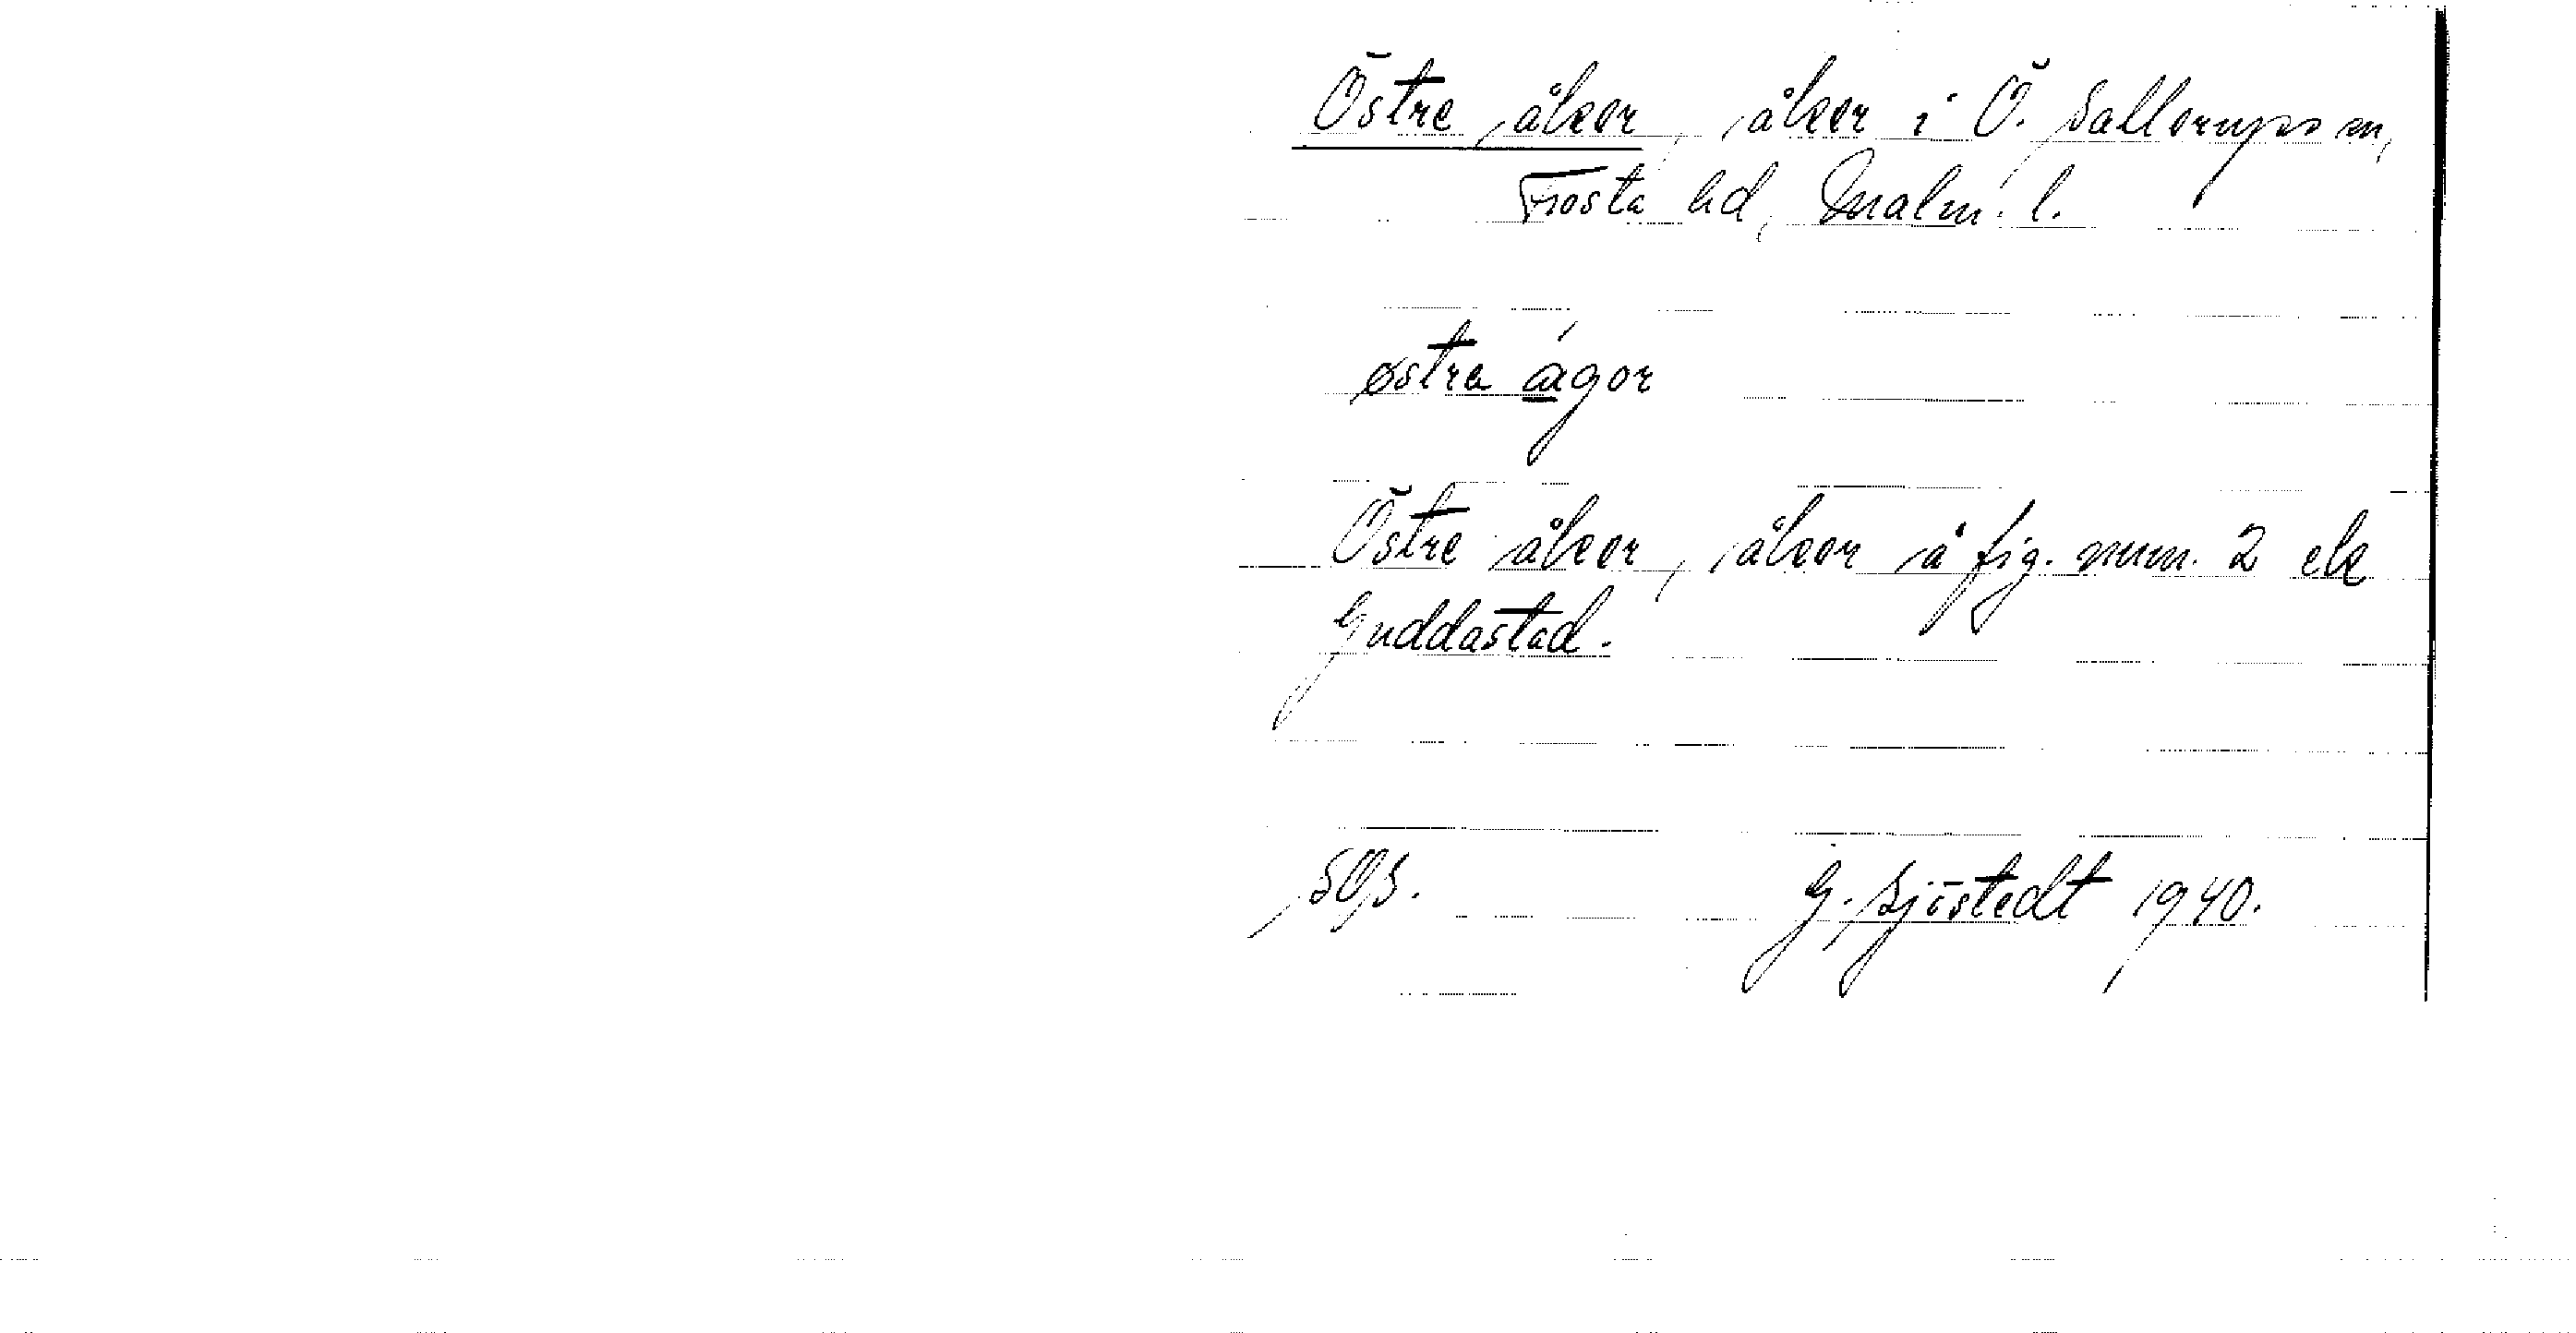 Östre åker, åker i Ö. Sallerups sn,
Frosta hd, Malm. l.
østra ágor
Östre åker, åker å fig. num. 2 ek
Guddastad.
SOS.
G. Sjöstedt 1940.